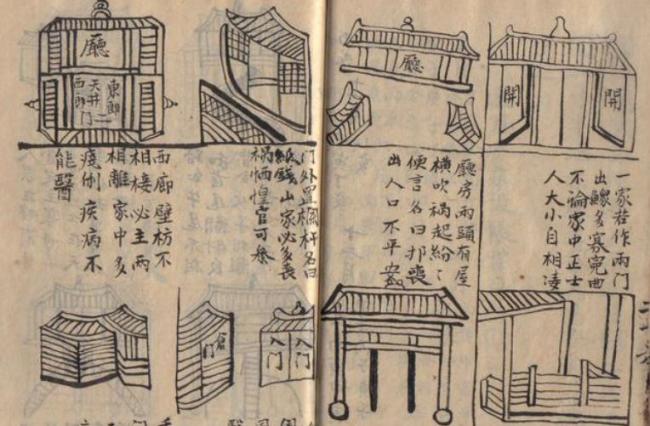 開
開
一家若作兩門
出鰥多寡冤曲
不論家中正士
人大小自相凌
廳
廳房兩頭有屋
橫吹禍起紛〻
便言名曰喪
出人口不平安
门外置欄杆名曰
紙錢山家必多喪
禍恓惶官可參
廳
東郎
天井
西郎门
西廊壁枋不
相接必主兩
相離家中多
疾病不
能醫
入门
入门
倉门